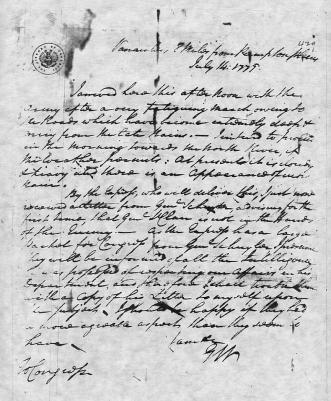 July 14. 1775.
I arrived here this afternoon with the
army after a very fatiguing March owing to
the Roads which have become extremely deep &
miry from the late Rains. — I intend to proceed
in the Morning towards the North River if
the weather permits. At present it is cloudy
& heavy and there is an Appearance of more
Rain.
By the Express, who will deliver this, I just now
received a Letter from Genl Schuyler advising for the
first time, that Genl is not in the Hands
of the Enemy. — As the Express has a large
Packet for Congress from Genl Schuyler, I presume
they will be informed of all the Intelligence
respecting our Affairs in his
Department, and therefore I shall not trouble them
with a Copy of his Letter to myself upon
the subject. I should be happy if they had
a more agreeable aspect than they seem to
have.
I am &c
GW
To Congress